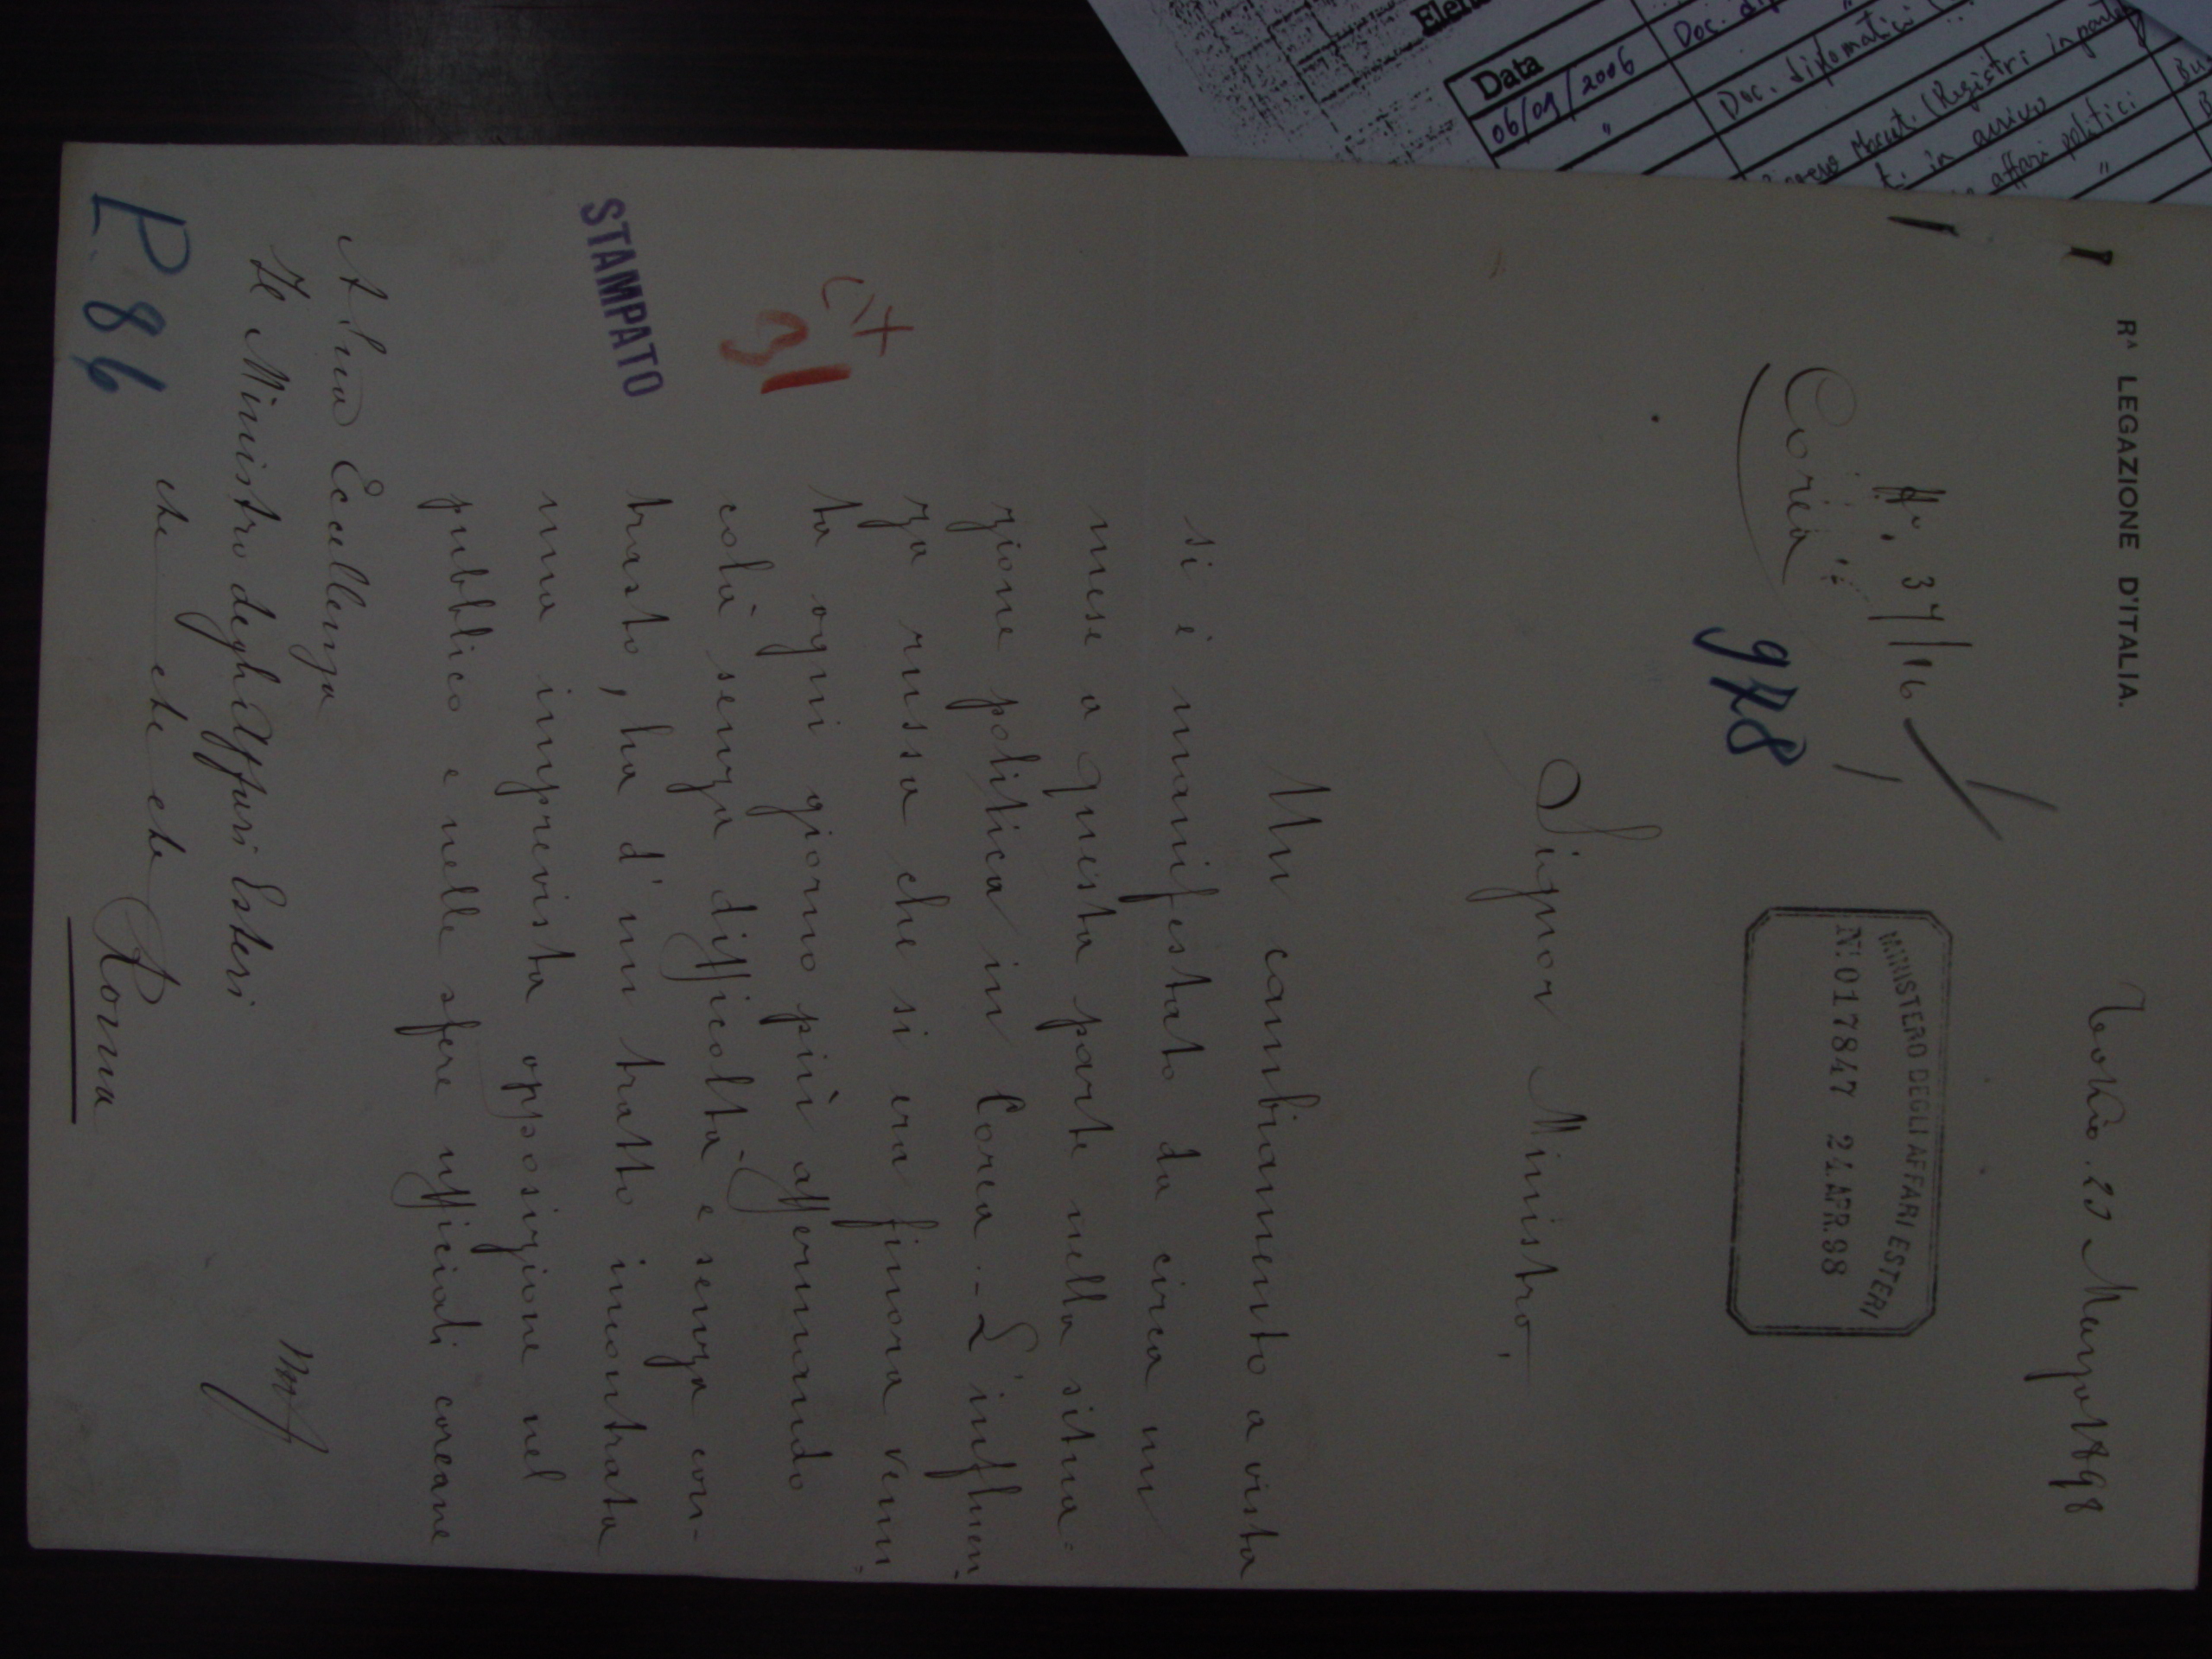 Rᴬ LEGAZIONE D'ITALIA.
Tokio. 20 Marzo 1898
Nº. 34/16
Corea
978
MINISTERO DEGLI AFFARI ESTERI
Nº 017847 24.APR.98
Signor Ministro,
Un cambiamento a vista
si è manifestato da circa un
mese a questa parte nella situa=
zione politica in Corea. - L'influen=
za russa che si era finora venu=
ta ogni giorno più affermando
colà senza difficoltà e senza con-
trasto, ha d'un tratto incontrata
una imprevista opposizione nel
pubblico e nelle sfere ufficiali coreane
31
STAMPATO
A Sua Eccellenza
Il Ministro degli Affari Esteri
etc etc etc Roma
P. 86
Data
06/09/2006
Doc. diplomatici
(Registri in
in arrivo
affari politici